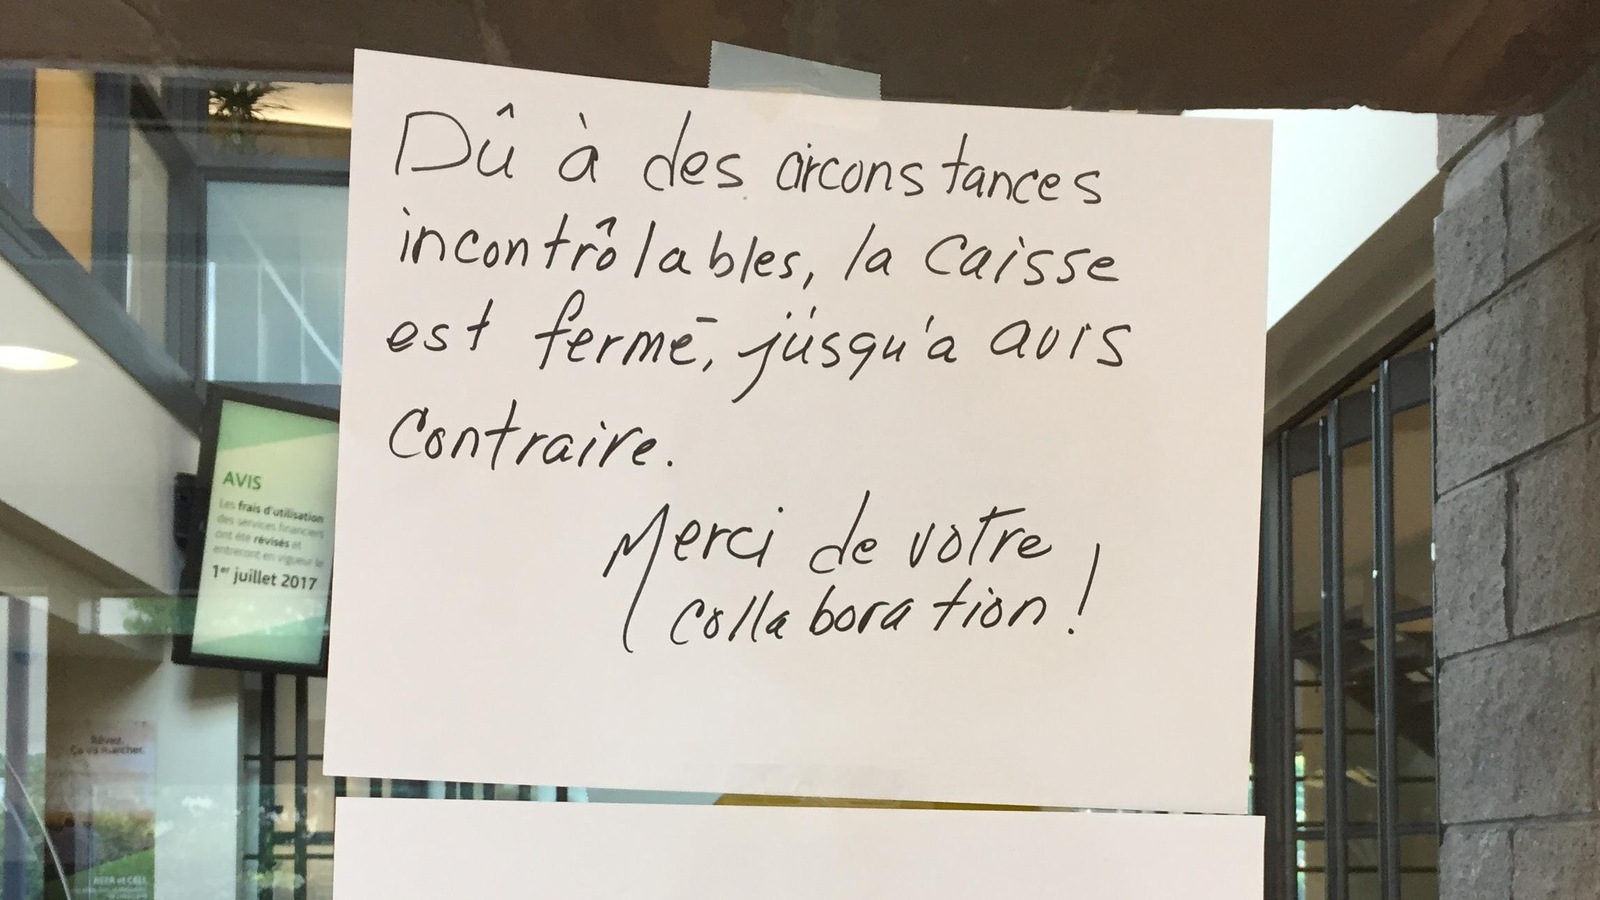 Dû à des circonstances
incontrôlables, la caisse
est fermé, jusqu'a avis
contraire.
Merci de votre
collaboration!
AVIS
Les frais d'utilisation
des services financiers
ont été révisés et
entreront en vigueur le
1er juillet 2017
Rêvez.
Ça va marcher.
REER et CELI